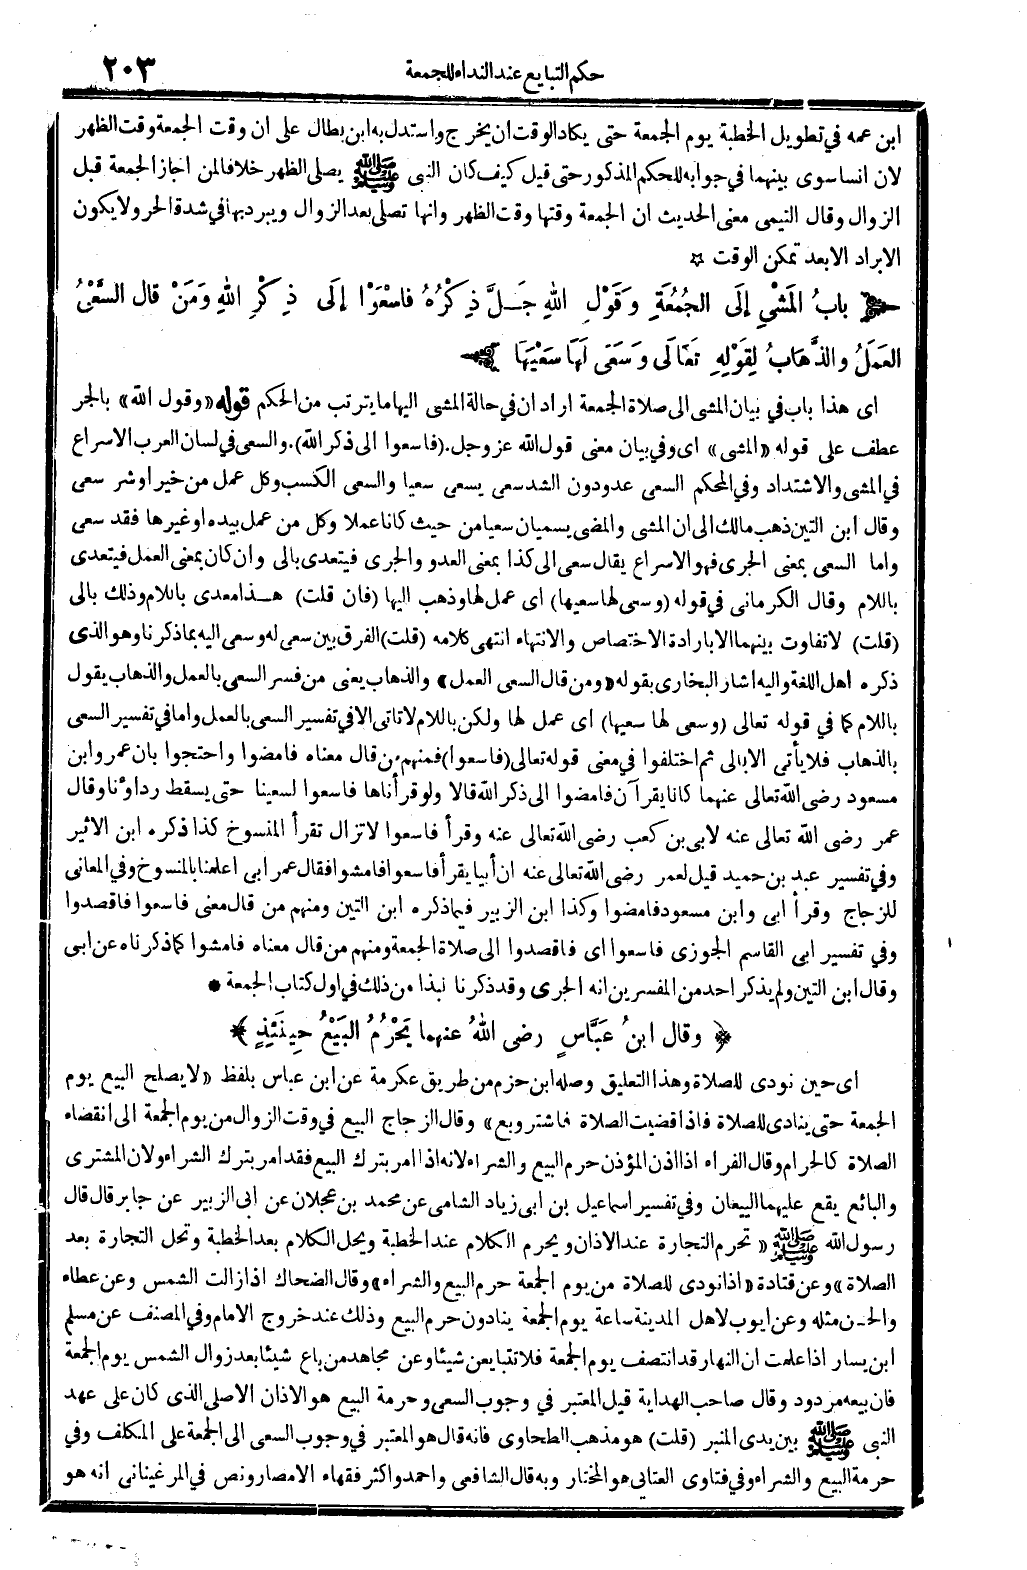 حكم التبايع عند النداء للجمعة ٢٠٣
ابن عمه في تطويل الخطبة يوم الجمعة حتى يكاد الوقت ان يخرج واستدل به ابن بطال على ان وقت الجمعة وقت الظهر
لان انسا سوى بينهما في جوابه للحكم المذكور حتى قيل كيف كان النبي ﷺ يصلى الظهر خلافا لمن اجاز الجمعة قبل
الزوال وقال التيمى معنى الحديث ان الجمعة وقتها وقت الظهر وانها تصلى بعد الزوال ويبرد بها في شدة الحر ولا يكون
الابراد الا بعد تمكن الوقت ☆
باب المَشْيِ إِلَى الجُمُعَةِ وَقَوْلِ اللهِ جَلَّ ذِكْرُهُ فاسْعَوْا إِلَى ذِكْرِ اللهِ وَمَنْ قال السَّعْيُ
العَمَلُ والذَّهَابُ لِقَوْلِهِ تَعَالَى وَسَعَى لَهَا سَعْيَهَا
اى هذا باب في بيان المشى الى صلاة الجمعة اراد ان في حالة المشى اليها ما يترتب من الحكم قوله «وقول الله» بالجر
عطف على قوله «المشى» اى وفي بيان معنى قول الله عز وجل (فاسعوا الى ذكر الله) والسعى في لسان العرب الاسراع
في المشى والاشتداد وفي المحكم السعى عدو دون الشد سعى يسعى سعيا والسعى الكسب وكل عمل من خير او شر سعى
وقال ابن التين ذهب مالك الى ان المشى والمضى يسميان سعيا من حيث كانا عملا وكل من عمل بيده او غيرها فقد سعى
واما السعى بمعنى الجرى فهو الاسراع يقال سعى الى كذا بمعنى العدو والجرى فيتعدى بالى وان كان بمعنى العمل فيتعدى
باللام وقال الكرمانى في قوله (وسعى لها سعيها) اى عمل لها وذهب اليها (فان قلت) هذا معدى باللام وذلك بالى
(قلت) لا تفاوت بينهما الا بارادة الاختصاص والانتهاء انتهى كلامه (قلت) الفرق بين سعى له وسعى اليه بما ذكرنا وهو الذى
ذكره اهل اللغة واليه اشار البخارى بقوله «ومن قال السعى العمل» والذهاب يعنى من فسر السعى بالعمل والذهاب يقول
باللام كما في قوله تعالى (وسعى لها سعيها) اى عمل لها ولكن باللام لا تاتى الا في تفسير السعى بالعمل واما في تفسير السعى
بالذهاب فلا يأتى الا بالى ثم اختلفوا في معنى قوله تعالى (فاسعوا) فمنهم من قال معناه فامضوا واحتجوا بان عمر وابن
مسعود رضى الله تعالى عنهما كانا يقرآن فامضوا الى ذكر الله قالا ولو قرأناها فاسعوا لسعينا حتى يسقط رداؤنا وقال
عمر رضى الله تعالى عنه لابى بن كعب رضى الله تعالى عنه وقرأ فاسعوا لا تزال تقرأ المنسوخ كذا ذكره ابن الاثير
وفي تفسير عبد بن حميد قيل لعمر رضى الله تعالى عنه ان أبيا يقرأ فاسعوا فامشوا فقال عمر ابى اعلمنا بالمنسوخ وفي المعانى
للزجاج وقرأ ابى وابن مسعود فامضوا وكذا ابن الزبير فيما ذكره ابن التين ومنهم من قال معنى فاسعوا فاقصدوا
وفي تفسير ابى القاسم الجوزى فاسعوا اى فاقصدوا الى صلاة الجمعة ومنهم من قال معناه فامشوا كما ذكرناه عن ابى
وقال ابن التين ولم يذكر احد من المفسرين انه الجرى وقد ذكرنا نبذا من ذلك في اول كتاب الجمعة *
﴿ وقال ابنُ عَبَّاسٍ رضى اللهُ عنهما يَحْرُمُ البَيْعُ حِينَئِذٍ ﴾
اى حين نودى للصلاة وهذا التعليق وصله ابن حزم من طريق عكرمة عن ابن عباس بلفظ «لا يصلح البيع يوم
الجمعة حتى ينادى للصلاة فاذا قضيت الصلاة فاشتر وبع» وقال الزجاج البيع في وقت الزوال من يوم الجمعة الى انقضاء
الصلاة كالحرام وقال الفراء اذا اذن المؤذن حرم البيع والشراء لانه اذا امر بترك البيع فقد امر بترك الشراء ولان المشترى
والبائع يقع عليهما البيعان وفي تفسير اسماعيل بن ابى زياد الشامى عن محمد بن عجلان عن ابى الزبير عن جابر قال قال
رسول الله ﷺ «تحرم التجارة عند الاذان ويحرم الكلام عند الخطبة ويحل الكلام بعد الخطبة وتحل التجارة بعد
الصلاة» وعن قتادة «اذا نودى للصلاة من يوم الجمعة حرم البيع والشراء» وقال الضحاك اذا زالت الشمس وعن عطاء
والحسن مثله وعن ايوب لاهل المدينة ساعة يوم الجمعة ينادون حرم البيع وذلك عند خروج الامام وفي المصنف عن مسلم
ابن يسار اذا علمت ان النهار قد انتصف يوم الجمعة فلا تتبايعن شيئا وعن مجاهد من باع شيئا بعد زوال الشمس يوم الجمعة
فان بيعه مردود وقال صاحب الهداية قيل المعتبر في وجوب السعى وحرمة البيع هو الاذان الاصلى الذى كان على عهد
النبى ﷺ بين يدى المنبر (قلت) هو مذهب الطحاوى فانه قال هو المعتبر في وجوب السعى الى الجمعة على المكلف وفي
حرمة البيع والشراء وفي فتاوى العتابى هو المختار وبه قال الشافعى واحمد واكثر فقهاء الامصار ونص في المرغينانى انه هو